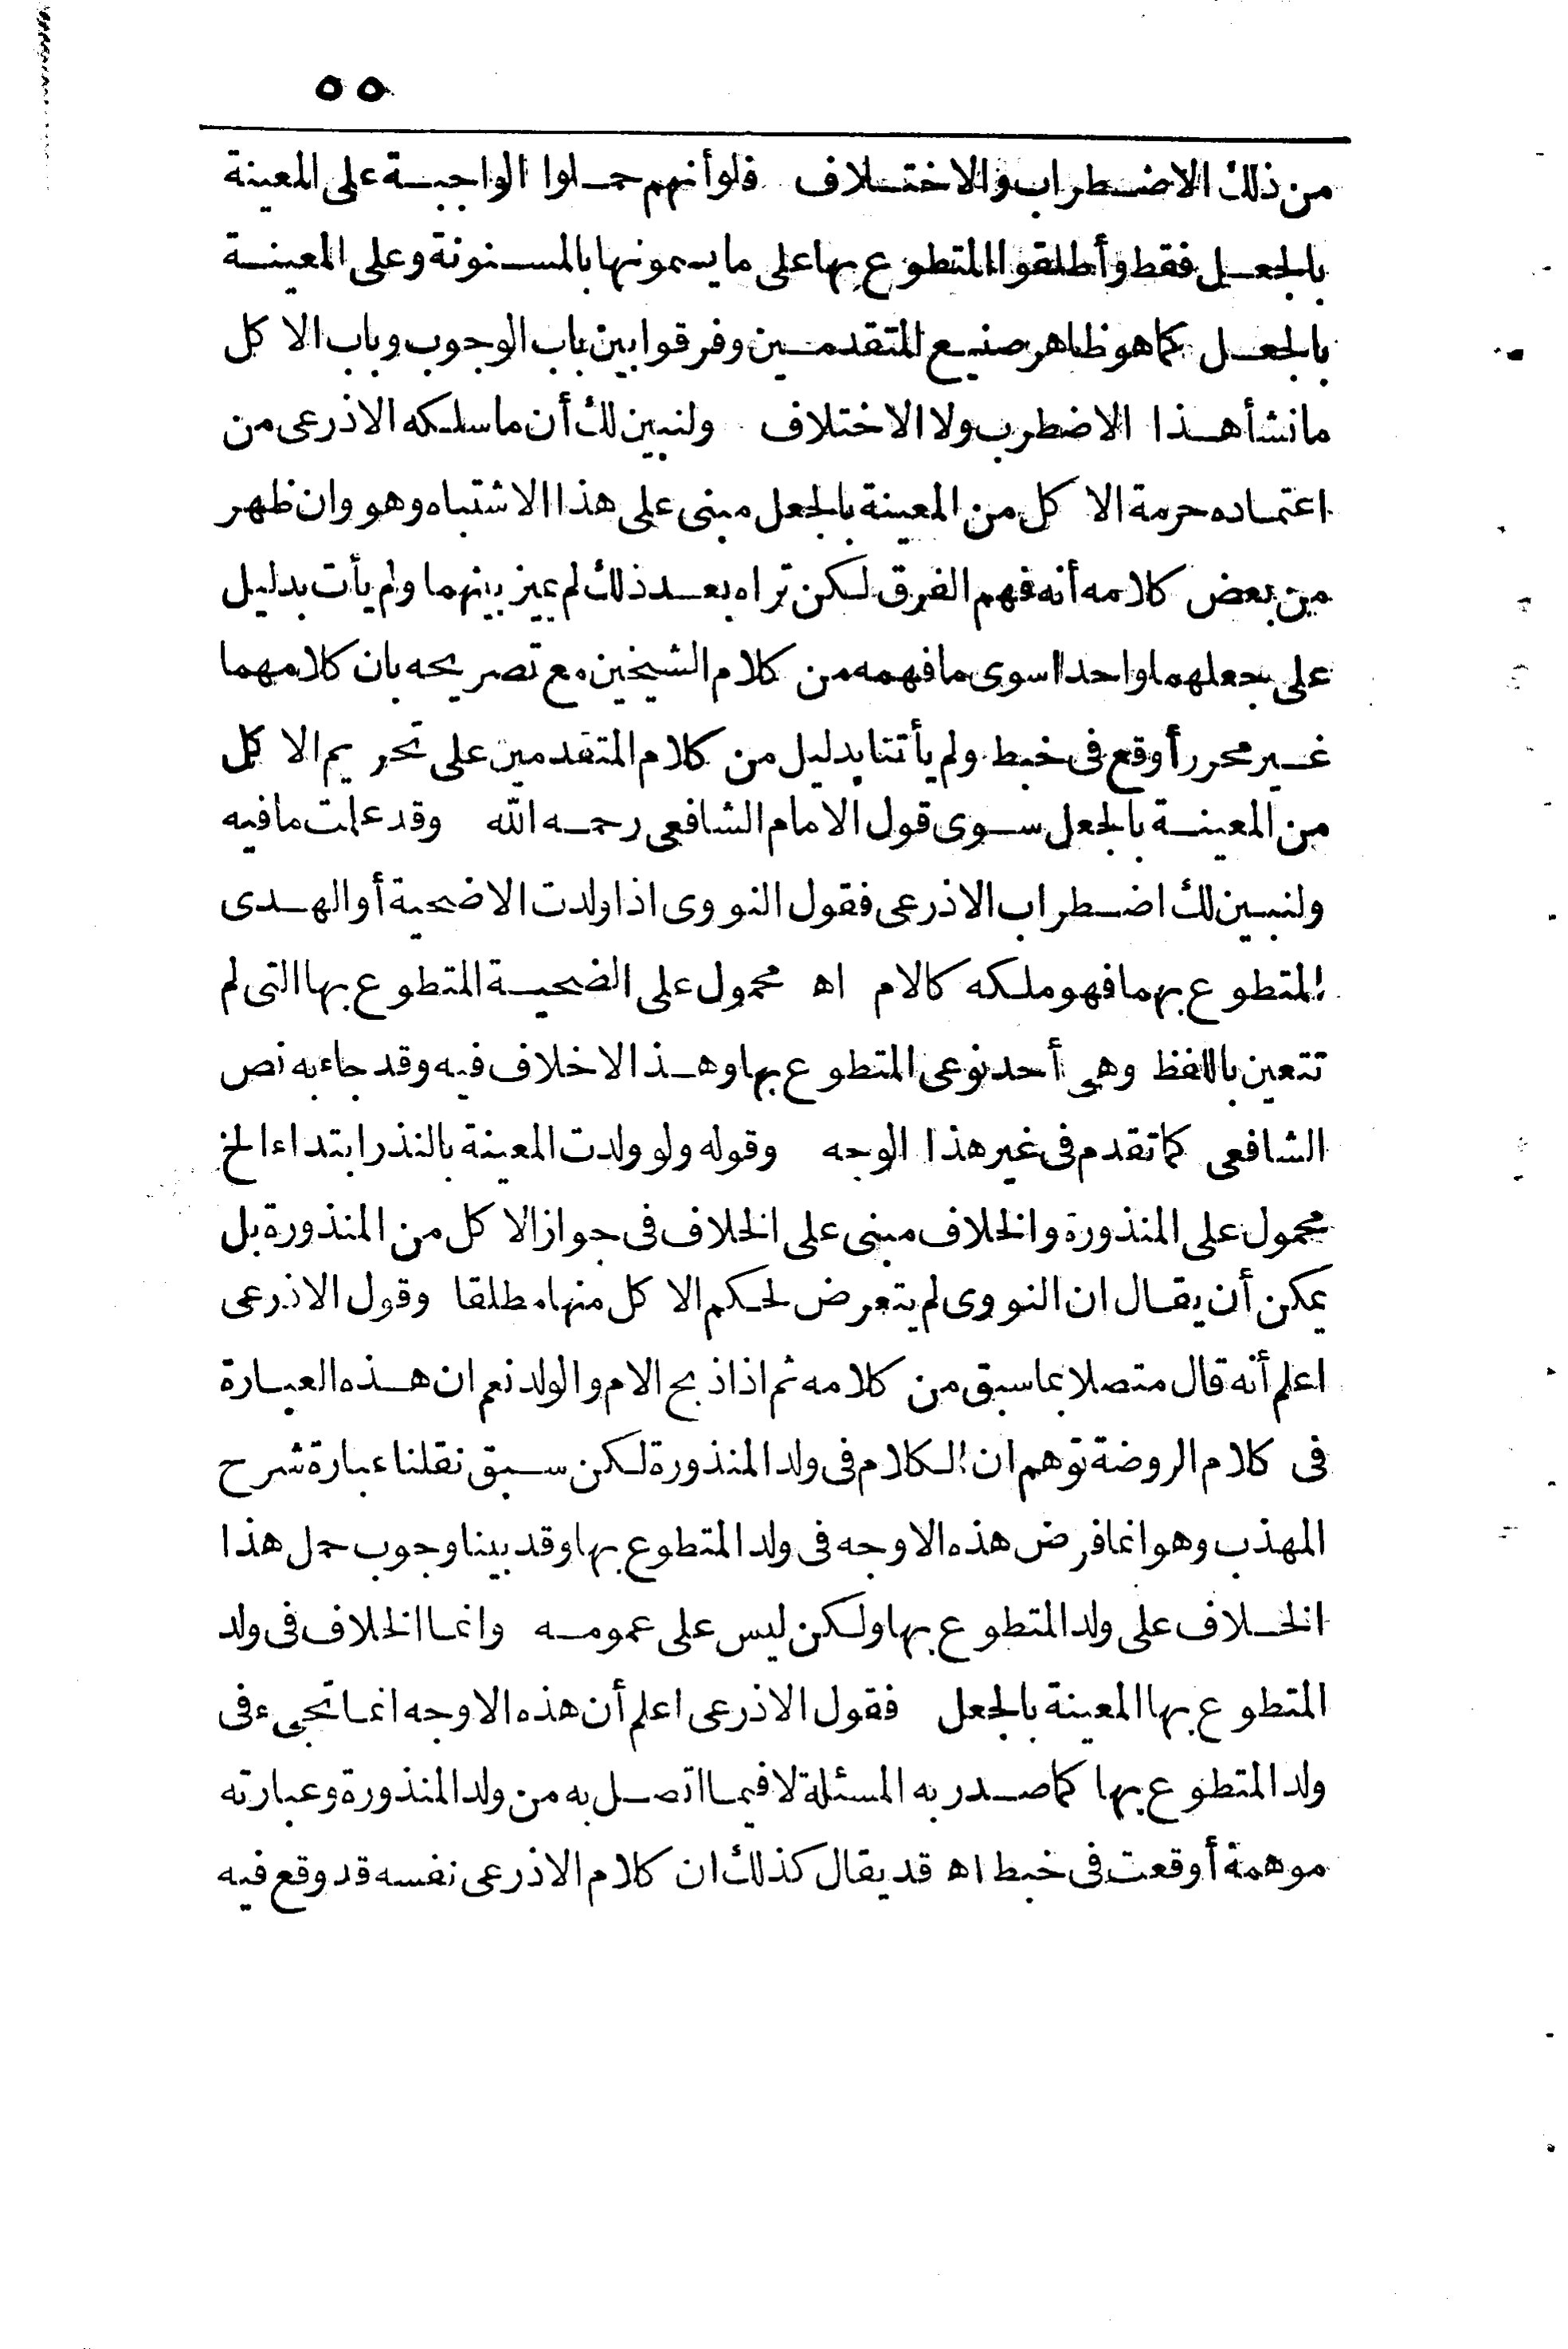 ٥٥
من ذلك الاضطراب والاختلاف فلو أنهم حملوا الواجبة على المعينة
بالجعل فقط وأطلقوا المتطوع بها على ما يسمونها بالمسنونة وعلى المعينة
بالجعل كما هو ظاهر صنيع المتقدمين وفرقوا بين باب الوجوب وباب الاكل
ما نشأ هذا الاضطرب ولا الاختلاف ولنبين لك أن ما سلكه الاذرعى من
اعتماده حرمة الاكل من المعينة بالجعل مبنى على هذا الاشتباه وهو وان ظهر
من بعض كلامه أنه فهم الفرق لكن تراه بعد ذلك لم يميز بينهما ولم يأت بدليل
على جعلهما واحدا سوى ما فهمه من كلام الشيخين مع تصريحه بان كلامهما
غير محرر أوقع فى خبط ولم يأتنا بدليل من كلام المتقدمين على تحريم الاكل
من المعينة بالجعل سوى قول الامام الشافعى رحمه الله وقد علمت ما فيه
ولنبين لك اضطراب الاذرعى فقول النووى اذا ولدت الاضحية أو الهدى
المتطوع بهما فهو ملكه كالام اه محمول على الضحية المتطوع بها التى لم
تتعين باللفظ وهى أحد نوعى المتطوع بها وهذا لاخلاف فيه وقد جاء به نص
الشافعى كما تقدم فى غير هذا الوجه وقوله ولو ولدت المعينة بالنذر ابتداء الخ
محمول على المنذورة والخلاف مبنى على الخلاف فى جواز الاكل من المنذورة بل
يمكن أن يقال ان النووى لم يتعرض لحكم الاكل منها مطلقا وقول الاذرعى
اعلم أنه قال متصلا بما سبق من كلامه ثم اذا ذبح الام والولد نعم ان هذه العبارة
فى كلام الروضة توهم ان الكلام فى ولد المنذورة لكن سبق نقلنا عبارة شرح
المهذب وهو انما فرض هذه الاوجه فى ولد المتطوع بها وقد بينا وجوب حمل هذا
الخلاف على ولد المتطوع بها ولكن ليس على عمومه وانما الخلاف فى ولد
المتطوع بها المعينة بالجعل فقول الاذرعى اعلم أن هذه الاوجه انما تجىء فى
ولد المتطوع بها كما صدر به المسئلة لا فيما اتصل به من ولد المنذورة وعبارته
موهمة أوقعت فى خبط اه قد يقال كذلك ان كلام الاذرعى نفسه قد وقع فيه